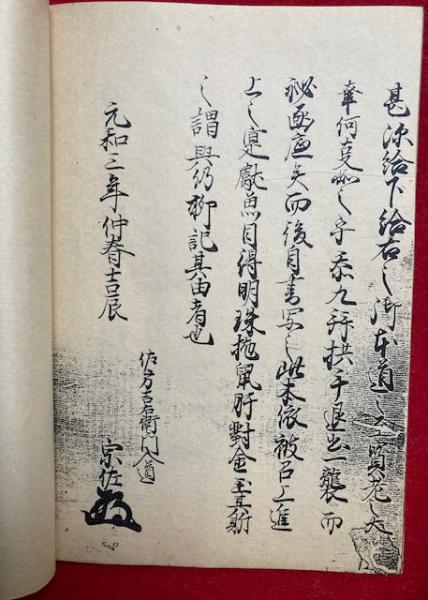 甚深給下給右之御本道之
幸何古如之乎忝九拜拱手退出一襲而
秘函底矣而後自書写之此本依被召上進
上之寔獻魚目得明珠抛鼠肝對金玉其斯
之謂與仍聊記其由者也
元和三年仲春吉辰
佐方吉右衛門入道
宗佐